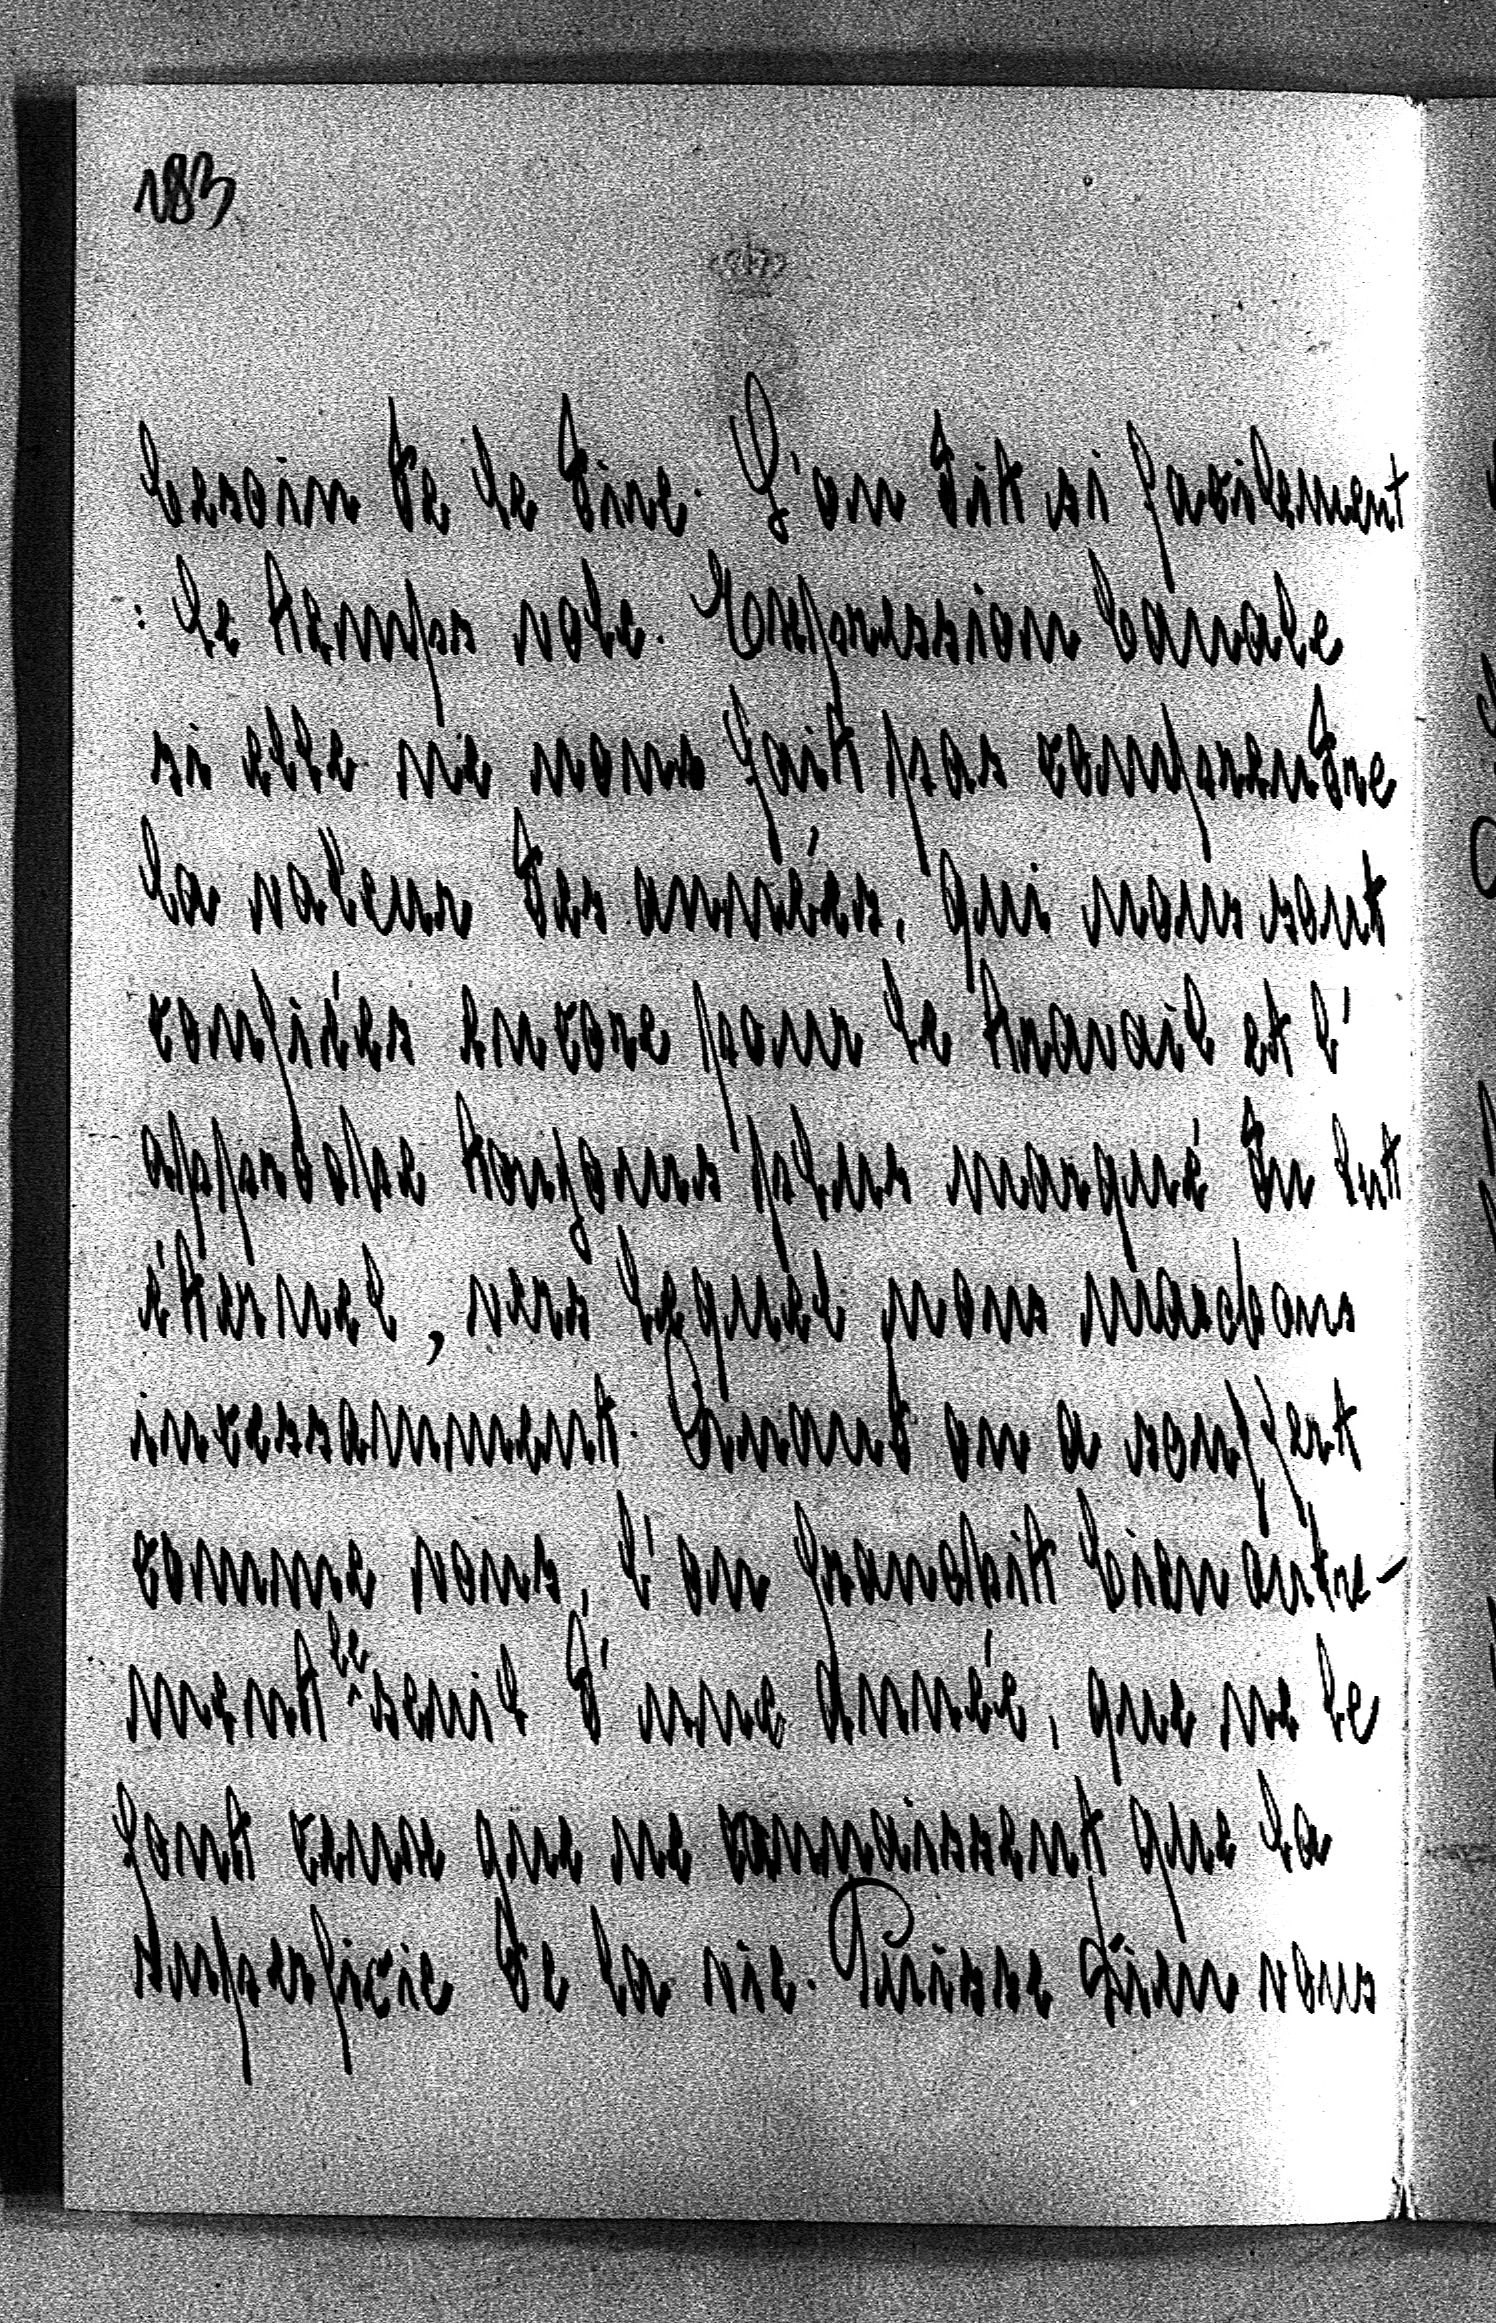 183
besoin de le dire. L'on dit si facilement
: le temps vole. Expression banale
si elle ne nous fait pas comprendre
la valeur des années, qui nous sont
confiées encore pour le travail et l'
approche toujours plus marqué du but
éternel, vers lequel nous marchons
incessamment. Quand on a souffert
comme vous, l'on franchit bien autre-
ment le seuil d'une année, que ne le
font ceux que ne connaissent que la
superficie de la vie. Puisse Dieu vous